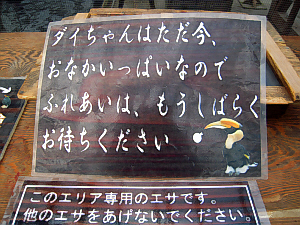 ダイちゃんはただ今、
おなかいっぱいなので
ふれあいは、もうしばらく
お待ちください
このエリア専用のエサです。
他のエサをあげないでください。